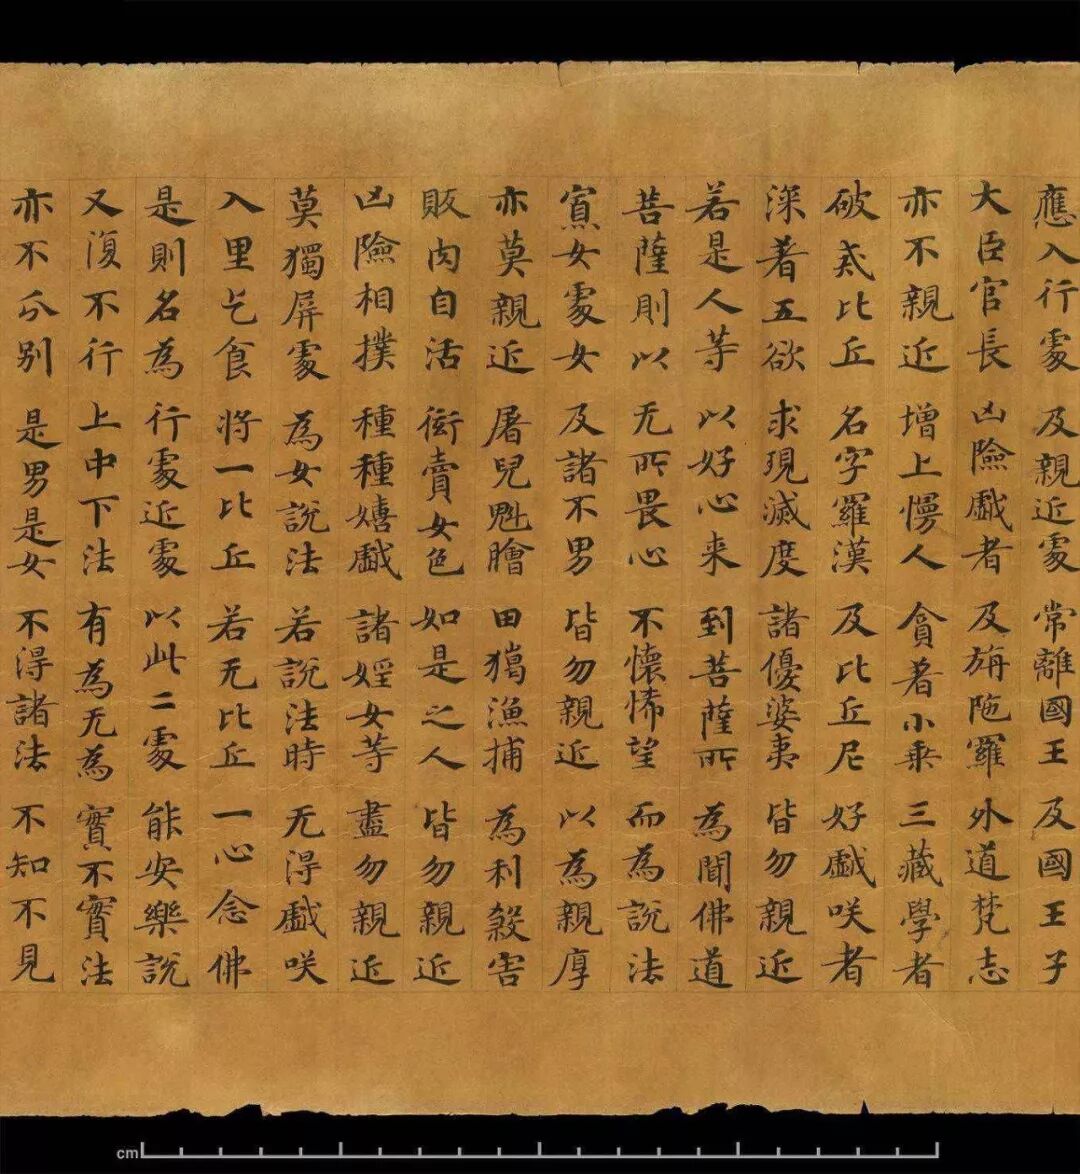 應入行處及親近處常離國王及國王子
大臣官長凶險戲者及旃陁羅外道梵志
亦不親近增上慢人貪著小乘三藏學者
破戒比丘名字羅漢及比丘尼好戲咲者
深著五欲求現滅度諸優婆夷皆勿親近
若是人等以好心来到菩薩所為聞佛道
菩薩則以无所畏心不懷悕望而為說法
寡女處女及諸不男皆勿親近以為親厚
亦莫親近屠兒魁膾田獦漁捕為利煞害
販肉自活衒賣女色如是之人皆勿親近
凶險相撲種種嬉戲諸婬女等盡勿親近
莫獨屏處為女說法若說法時无得戲咲
入里乞食將一比丘若无比丘一心念佛
是則名為行處近處以此二處能安樂說
又復不行上中下法有為无為實不實法
亦不分别是男是女不得諸法不知不見
cm